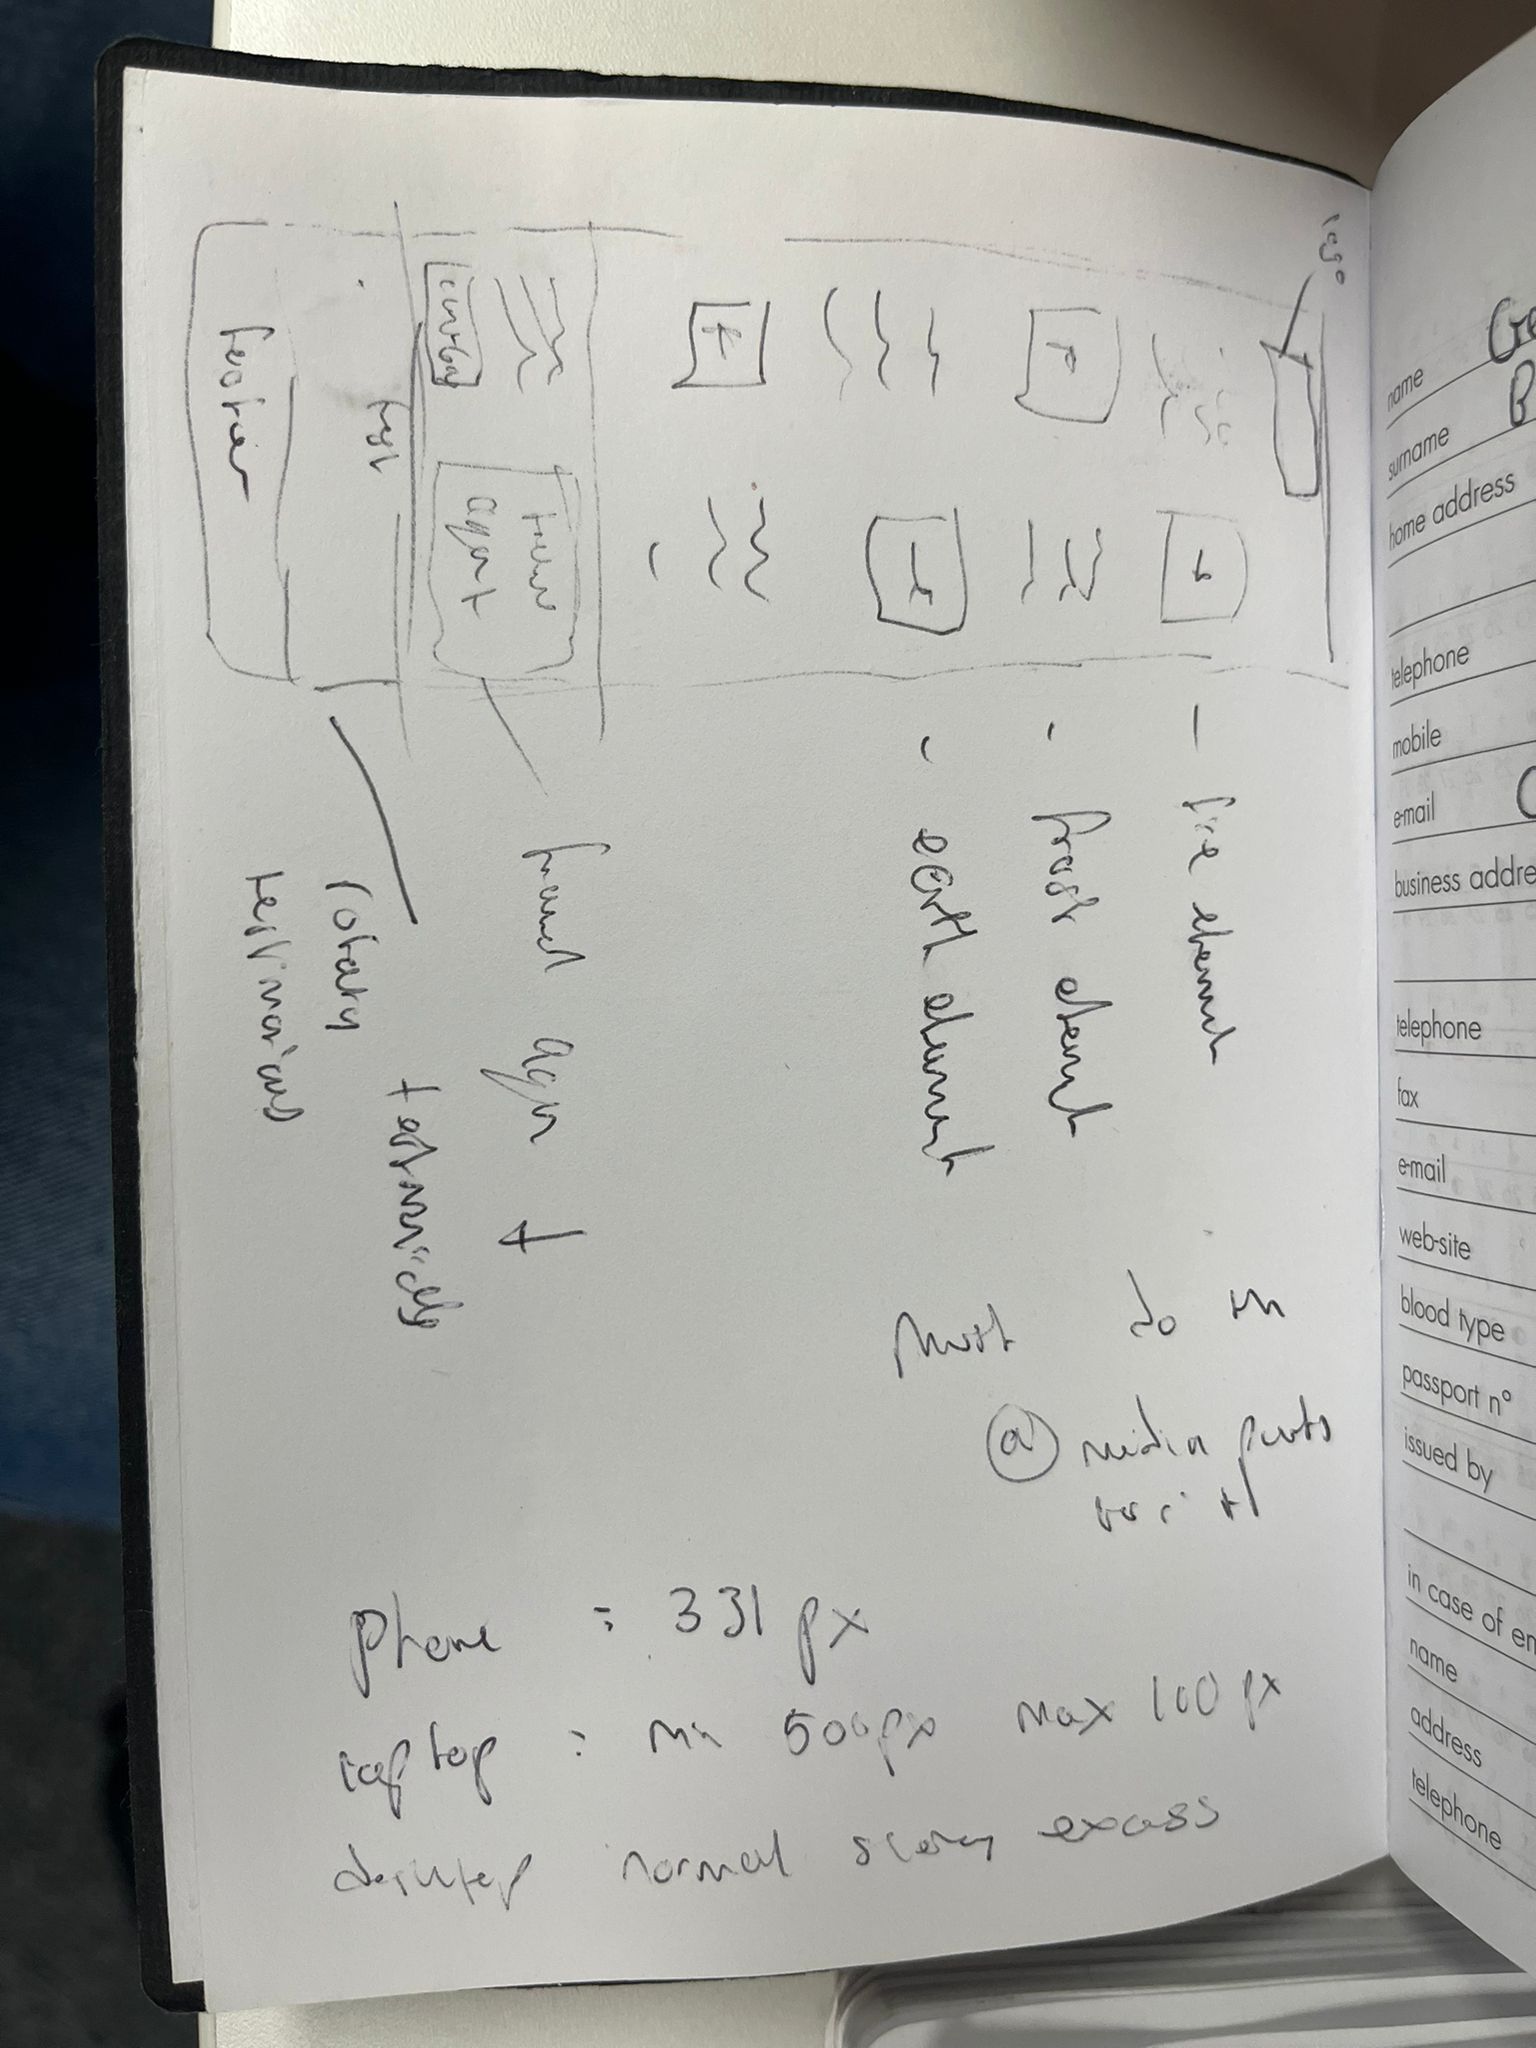 logo
t
t
t
t
travel
agent
contact
test
footer
- fire element
- frost element
- earth element
travel agent +
testimonials
rotary
testimonials
Must do in
@ media
phone : 331 px
laptop : min 500px max 1100 px
desktop normal screen excess
name
surname
home address
telephone
mobile
e-mail
business addre
telephone
fax
e-mail
web-site
blood type
passport n°
issued by
in case of em
name
address
telephone